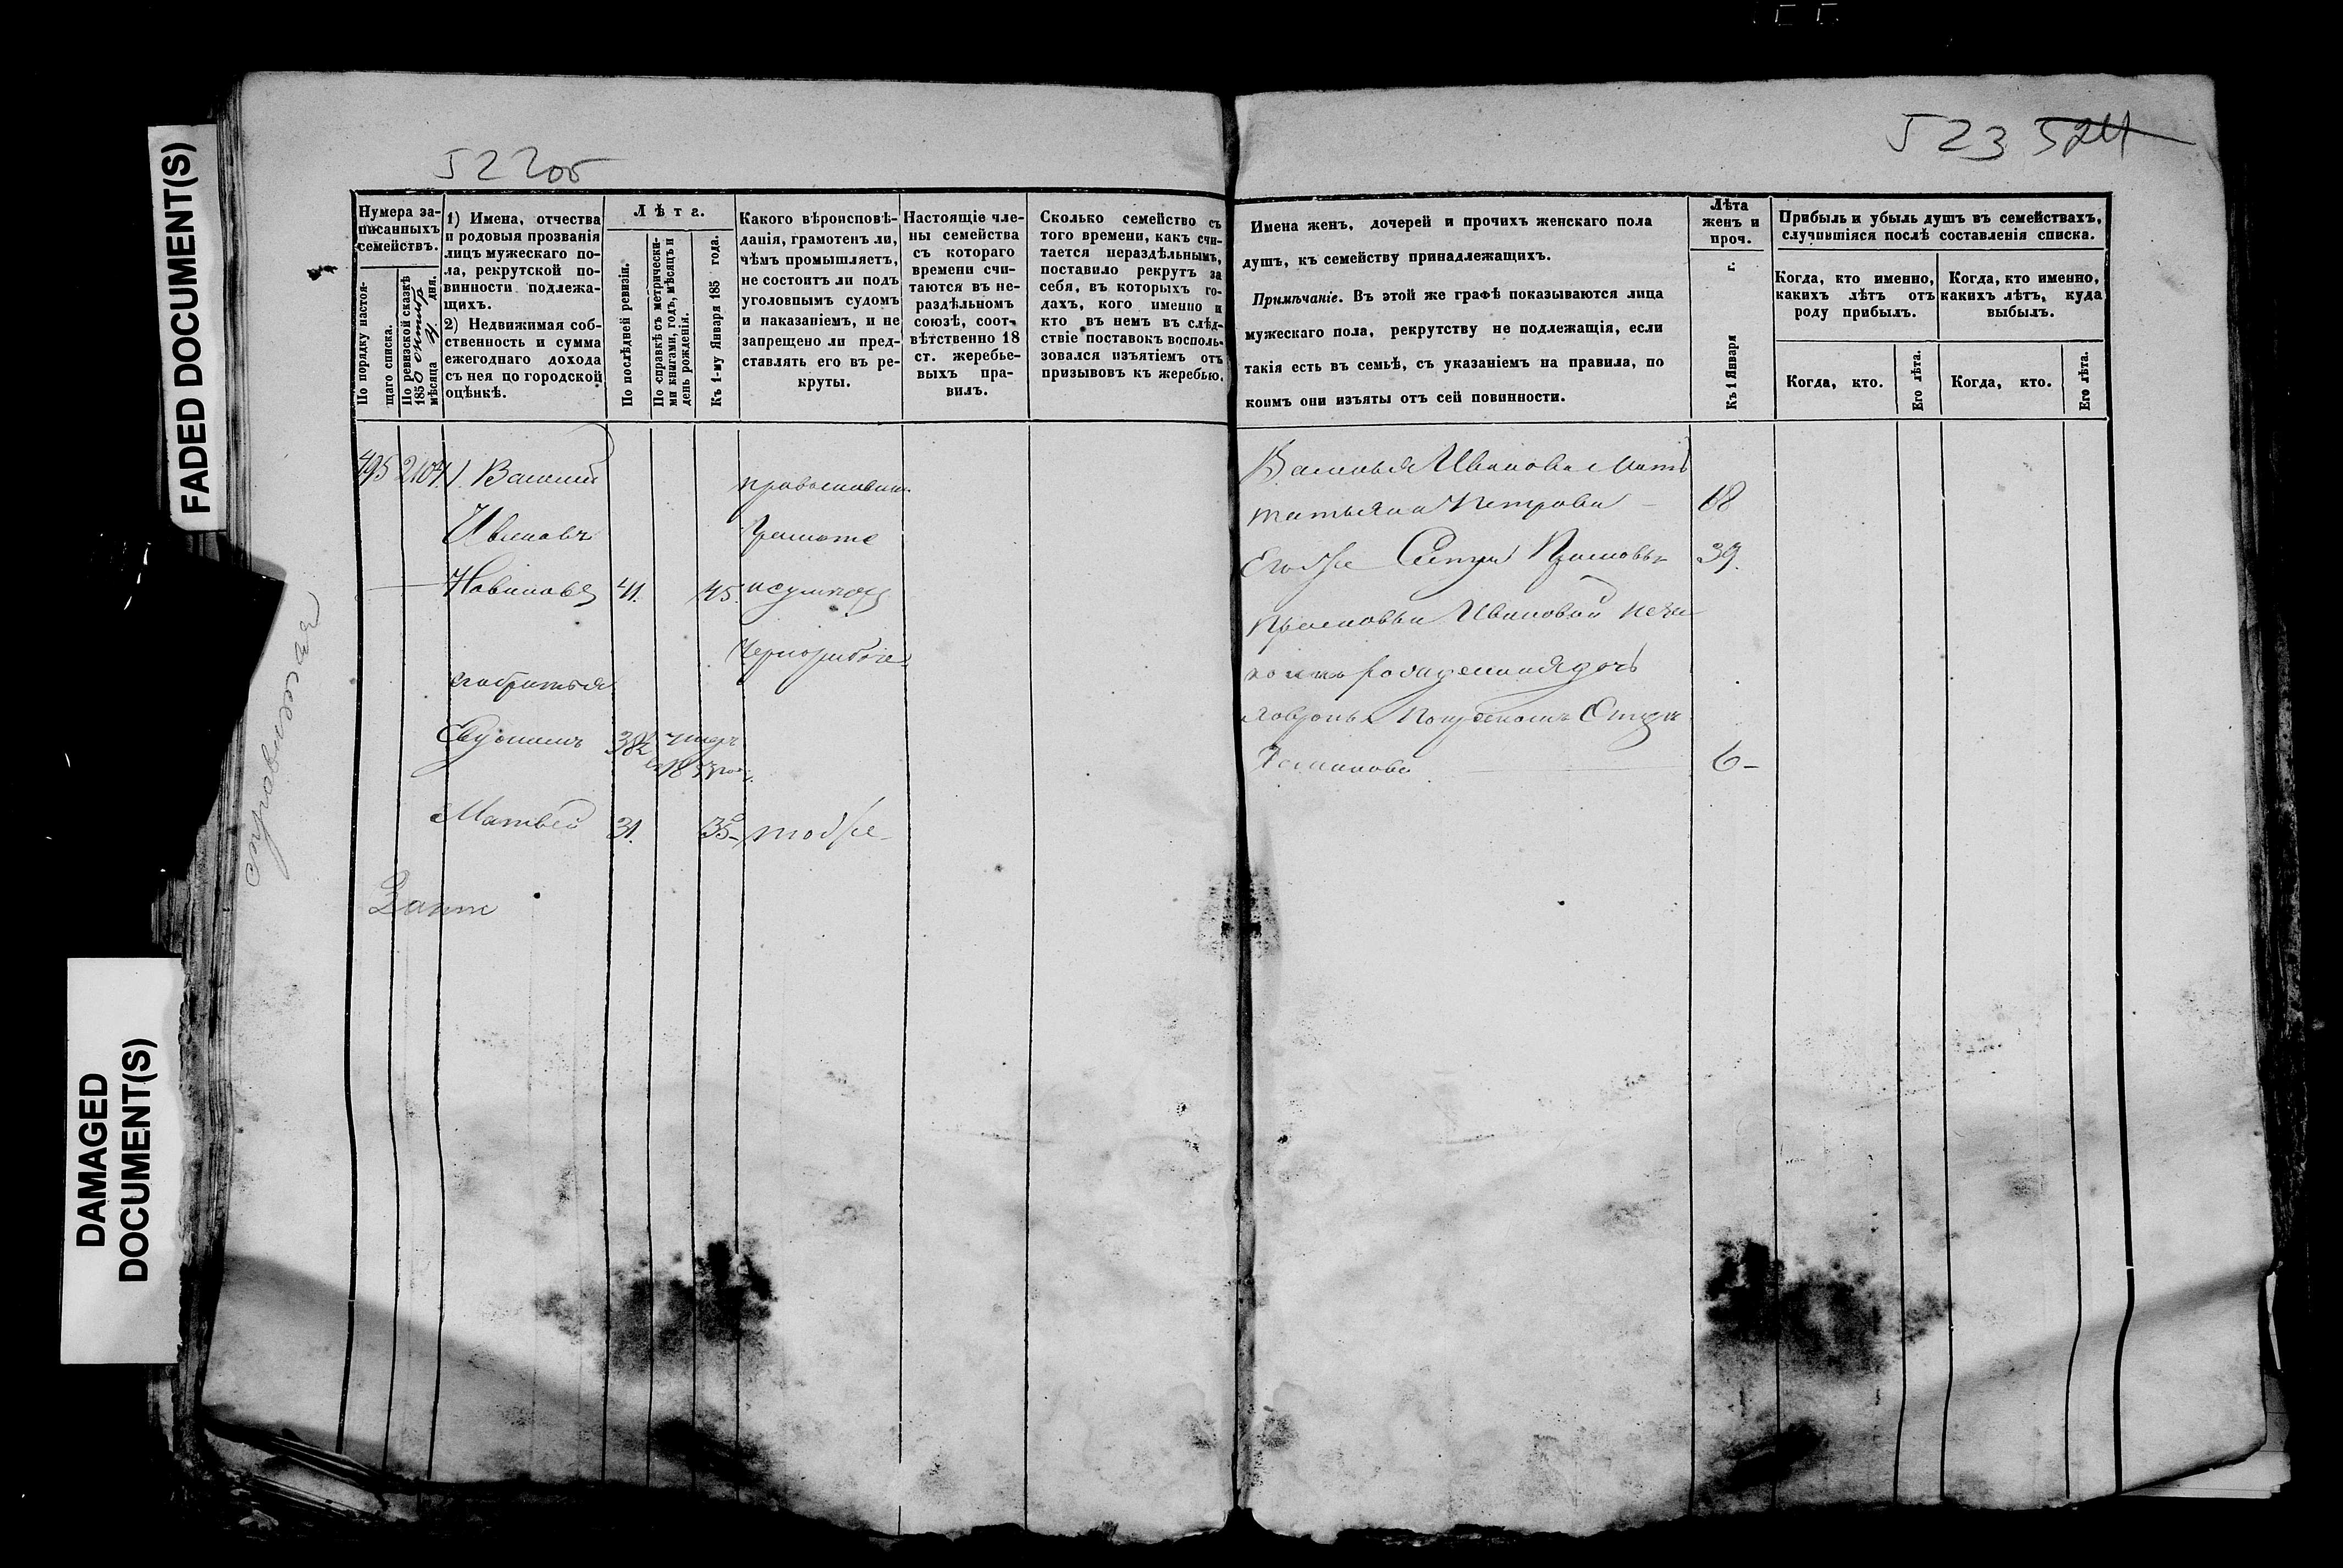 FADED DOCUMENT(S)
DAMAGED
DOCUMENT(S)
522об
Нумера за-
писанныхъ
семействъ.
По порядку настоя-
щаго списка.
По ревизской сказкѣ
1850 октяб
мѣсяца дня.
1) Имена, отчества
и родовыя прозванія
лицъ мужескаго по-
ла, рекрутской по-
винности подлежа-
щихъ.
2) Недвижимая соб-
ственность и сумма
ежегоднаго дохода
съ нея по городской
оцѣнкѣ.
Лѣта.
По послѣдней ревизіи.
По справкѣ съ метрически-
ми книгами, годъ, мѣсяцъ и
день рожденія.
Къ 1-му Января 185 года.
Какого вѣроисповѣ-
данія, грамотенъ ли,
чѣмъ промышляетъ,
не состоитъ ли подъ
уголовнымъ судомъ
и наказаніемъ, и не
запрещено ли пред-
ставлять его въ ре-
круты.
Настоящіе чле-
ны семейства
съ котораго
времени счи-
таются въ не-
раздѣльномъ
союзѣ, соот-
вѣтственно 18
ст. жеребье-
выхъ пра-
вилъ.
Сколько семейство съ
того времени, какъ счи-
тается нераздѣльнымъ,
поставило рекрутъ за
себя, въ которыхъ го-
дахъ, кого именно и
кто въ немъ въ слѣд-
ствіе поставокъ восполь-
зовался изъятіемъ отъ
призывовъ къ жеребью.
495 2107 1) Василий
православн.
Ивановъ
Грамоте
Новиковъ 41. 45.
Чернорабоче
его братья
38½ умеръ
въ 1853 году
Матвей 31. 35 тоже
523 524
Имена женъ, дочерей и прочихъ женскаго пола
душъ, къ семейству принадлежащихъ.
Примѣчаніе. Въ этой же графѣ показываются лица
мужескаго пола, рекрутству не подлежащія, если
такія есть въ семьѣ, съ указаніемъ на правила, по
коимъ они изъяты отъ сей повинности.
Лѣта
женъ и
проч.
Къ 1 Января г.
Прибыль и убыль душъ въ семействахъ,
случившіяся послѣ составленія списка.
Когда, кто именно,
какихъ лѣтъ отъ
роду прибылъ.
Когда, кто именно,
какихъ лѣтъ, куда
выбылъ.
Когда, кто.
Его лѣта.
Когда, кто.
Его лѣта.
Василья Иванова мать
татьяна Петрова 68
Его же Сестра 39.
Прасковьи Ивановой неза
конно рожденная дочь
6